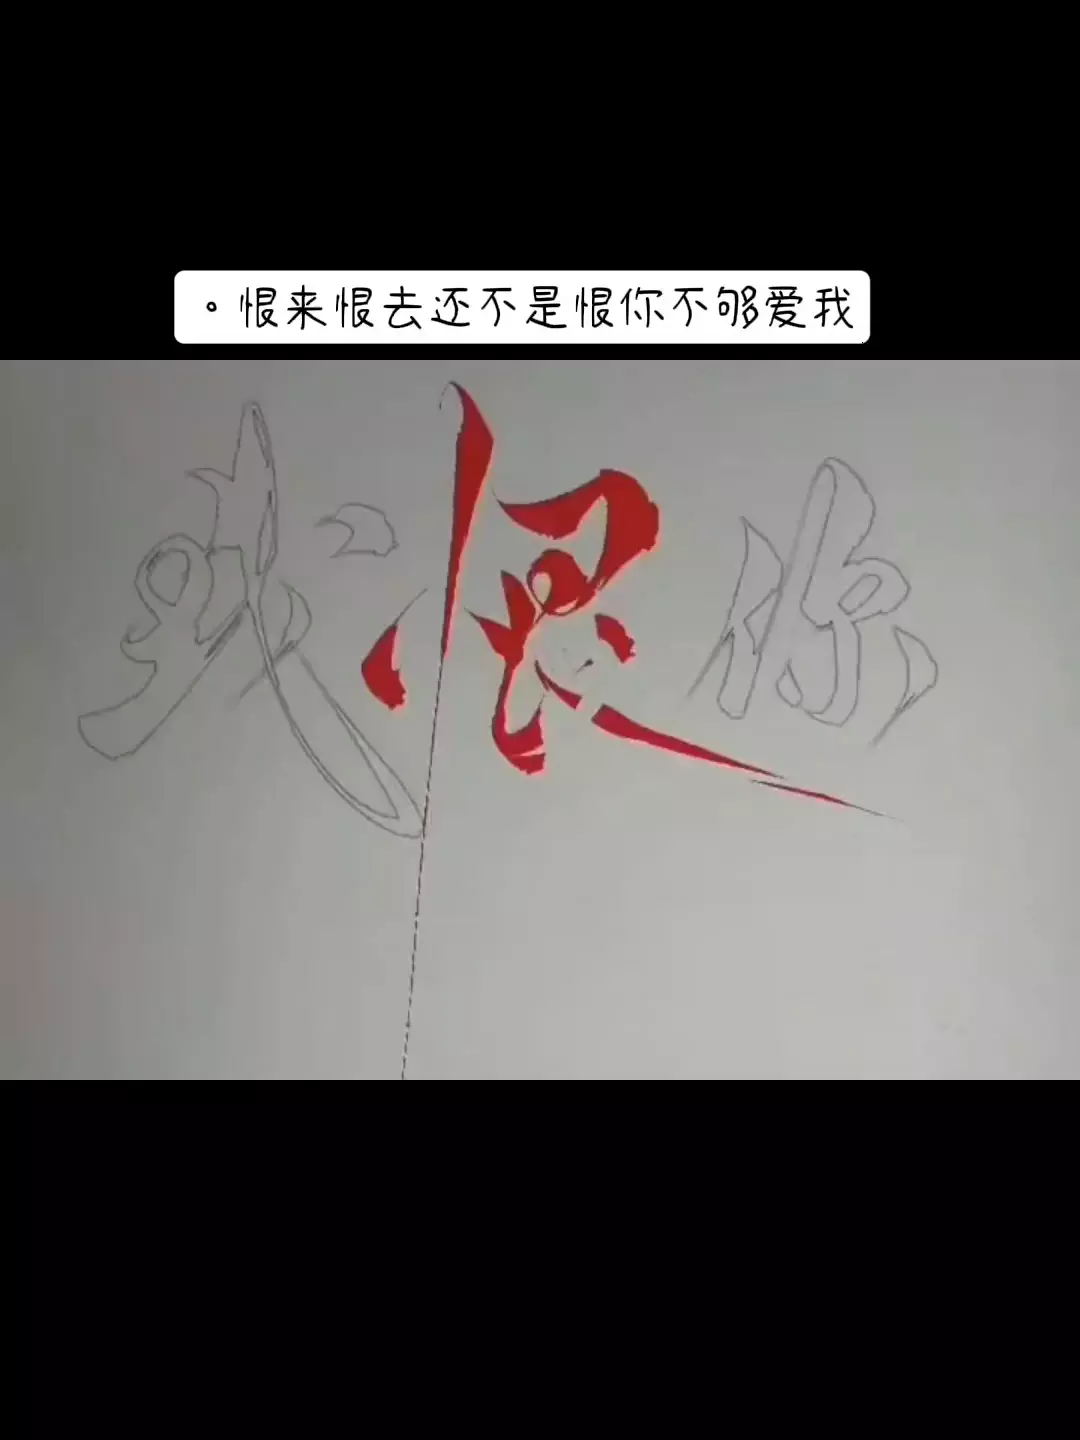 。恨来恨去还不是恨你不够爱我
我恨你